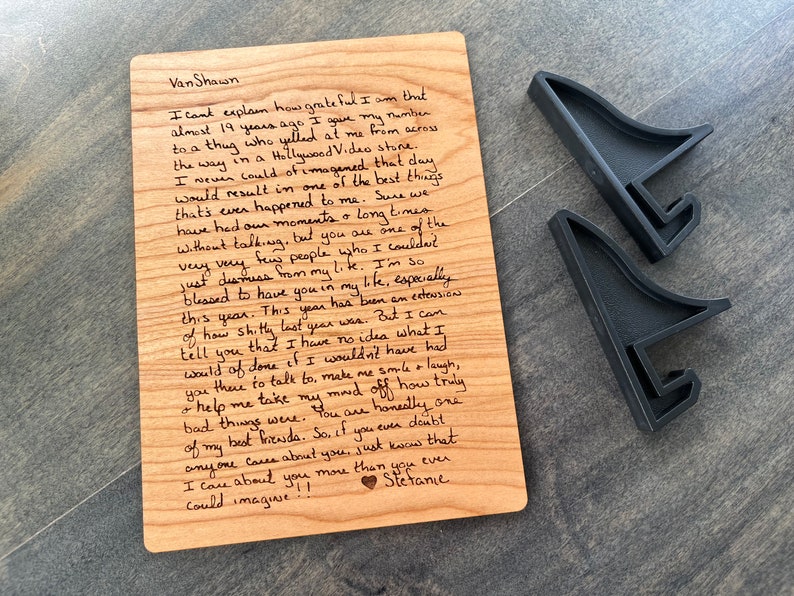 VanShawn
I cant explain how grateful I am that
almost 19 years ago I gave my number
to a thug who yelled at me from across
the way in a Hollywood Video store.
I never could of imagined that day
would result in one of the best things
that's ever happened to me. Sure we
have had our moments + long times
without talking, but you are one of the
very very few people who I couldn't
just dismess from my life. I'm so
blessed to have you in my life, especially
this year. This year has been an extension
of how shitty last year was. But I can
tell you that I have no idea what I
would of done if I wouldn't have had
you there to talk to, make me smile + laugh,
+ help me take my mind off how truly
bad things were. You are honestly one
of my best friends. So, if you ever doubt
anyone cares about you, just know that
I care about you more than you ever
could imagine!! ♥ Stefanie